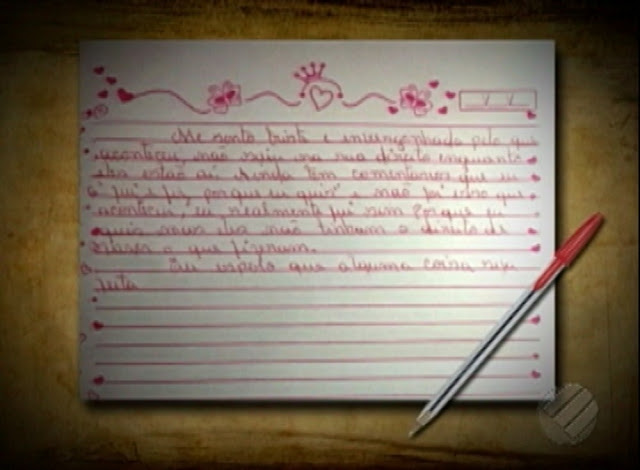 Me sinto triste e envergonhada pelo que
aconteceu, não vejo na rua direito enquanto
eles estão aí. Ainda têm comentários que eu
fui e fiz porque eu quis e não foi isso que
aconteceu, eu realmente fui sim porque eu
quis mas eles não tinham o direito de
fazer o que fizeram.
Eu espero que alguma coisa seja
feita